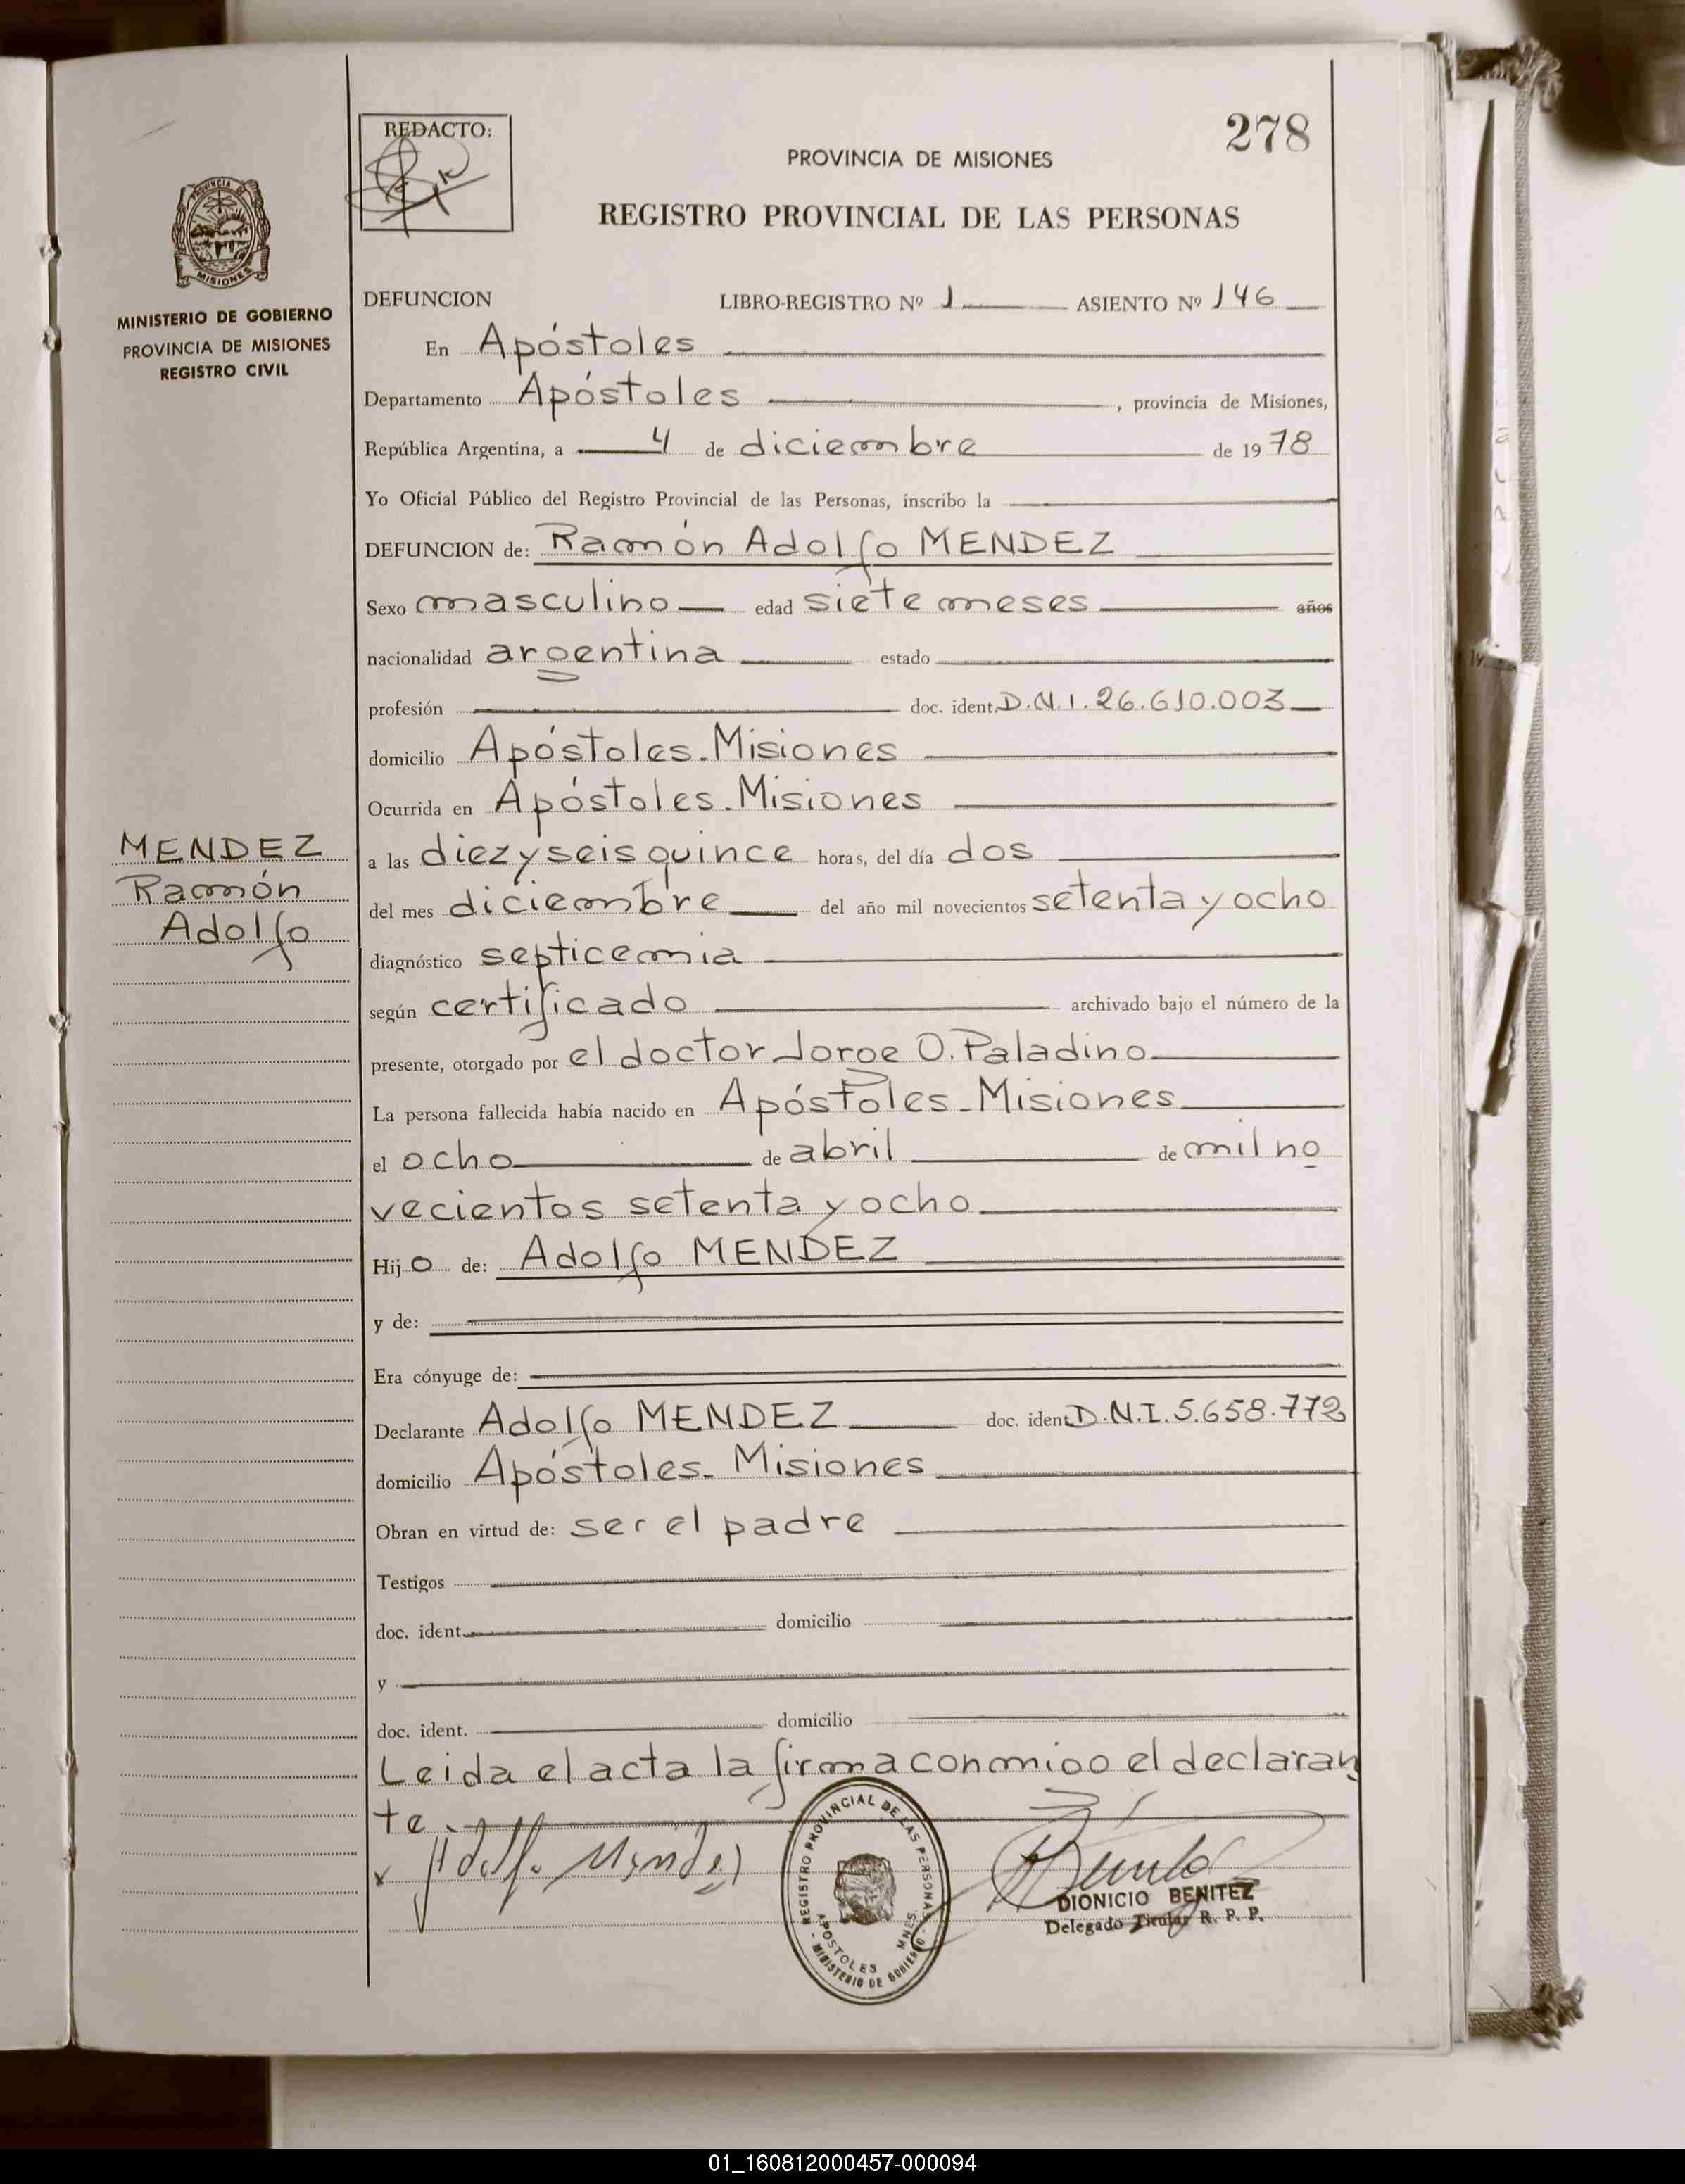 278
REDACTO:
PROVINCIA DE MISIONES
REGISTRO PROVINCIAL DE LAS PERSONAS
PROVINCIA DE
MISIONES
MINISTERIO DE GOBIERNO
PROVINCIA DE MISIONES
REGISTRO CIVIL
DEFUNCION LIBRO-REGISTRO Nº 1 ASIENTO Nº 146
En Apóstoles
Departamento Apóstoles , provincia de Misiones,
República Argentina, a 4 de diciembre de 1978
Yo Oficial Público del Registro Provincial de las Personas, inscribo la
DEFUNCION de: Ramón Adolfo MENDEZ
Sexo masculino edad siete meses años
nacionalidad argentina estado
profesión doc. ident. D.N.I. 26.610.003
domicilio Apóstoles-Misiones
Ocurrida en Apóstoles-Misiones
MENDEZ
Ramón
Adolfo
a las diez y seis quince horas, del día dos
del mes diciembre del año mil novecientos setenta y ocho
diagnóstico septicemia
según certificado archivado bajo el número de la
presente, otorgado por el doctor Jorge O. Paladino
La persona fallecida había nacido en Apóstoles-Misiones
el ocho de abril de mil no
vecientos setenta y ocho
Hijo de: Adolfo MENDEZ
y de:
Era cónyuge de:
Declarante Adolfo MENDEZ doc. ident. D.N.I. 5.658.772
domicilio Apóstoles- Misiones
Obran en virtud de: ser el padre
Testigos
doc. ident. domicilio
y
doc. ident. domicilio
Leida el acta la firma conmigo el declaran
te.
x Adolfo Mendez
REGISTRO PROVINCIAL DE LAS PERSONAS
APOSTOLES MNES.
- MINISTERIO DE GOBIERNO -
DIONICIO BENITEZ
Delegado Titular R. P. P.
01_160812000457-000094